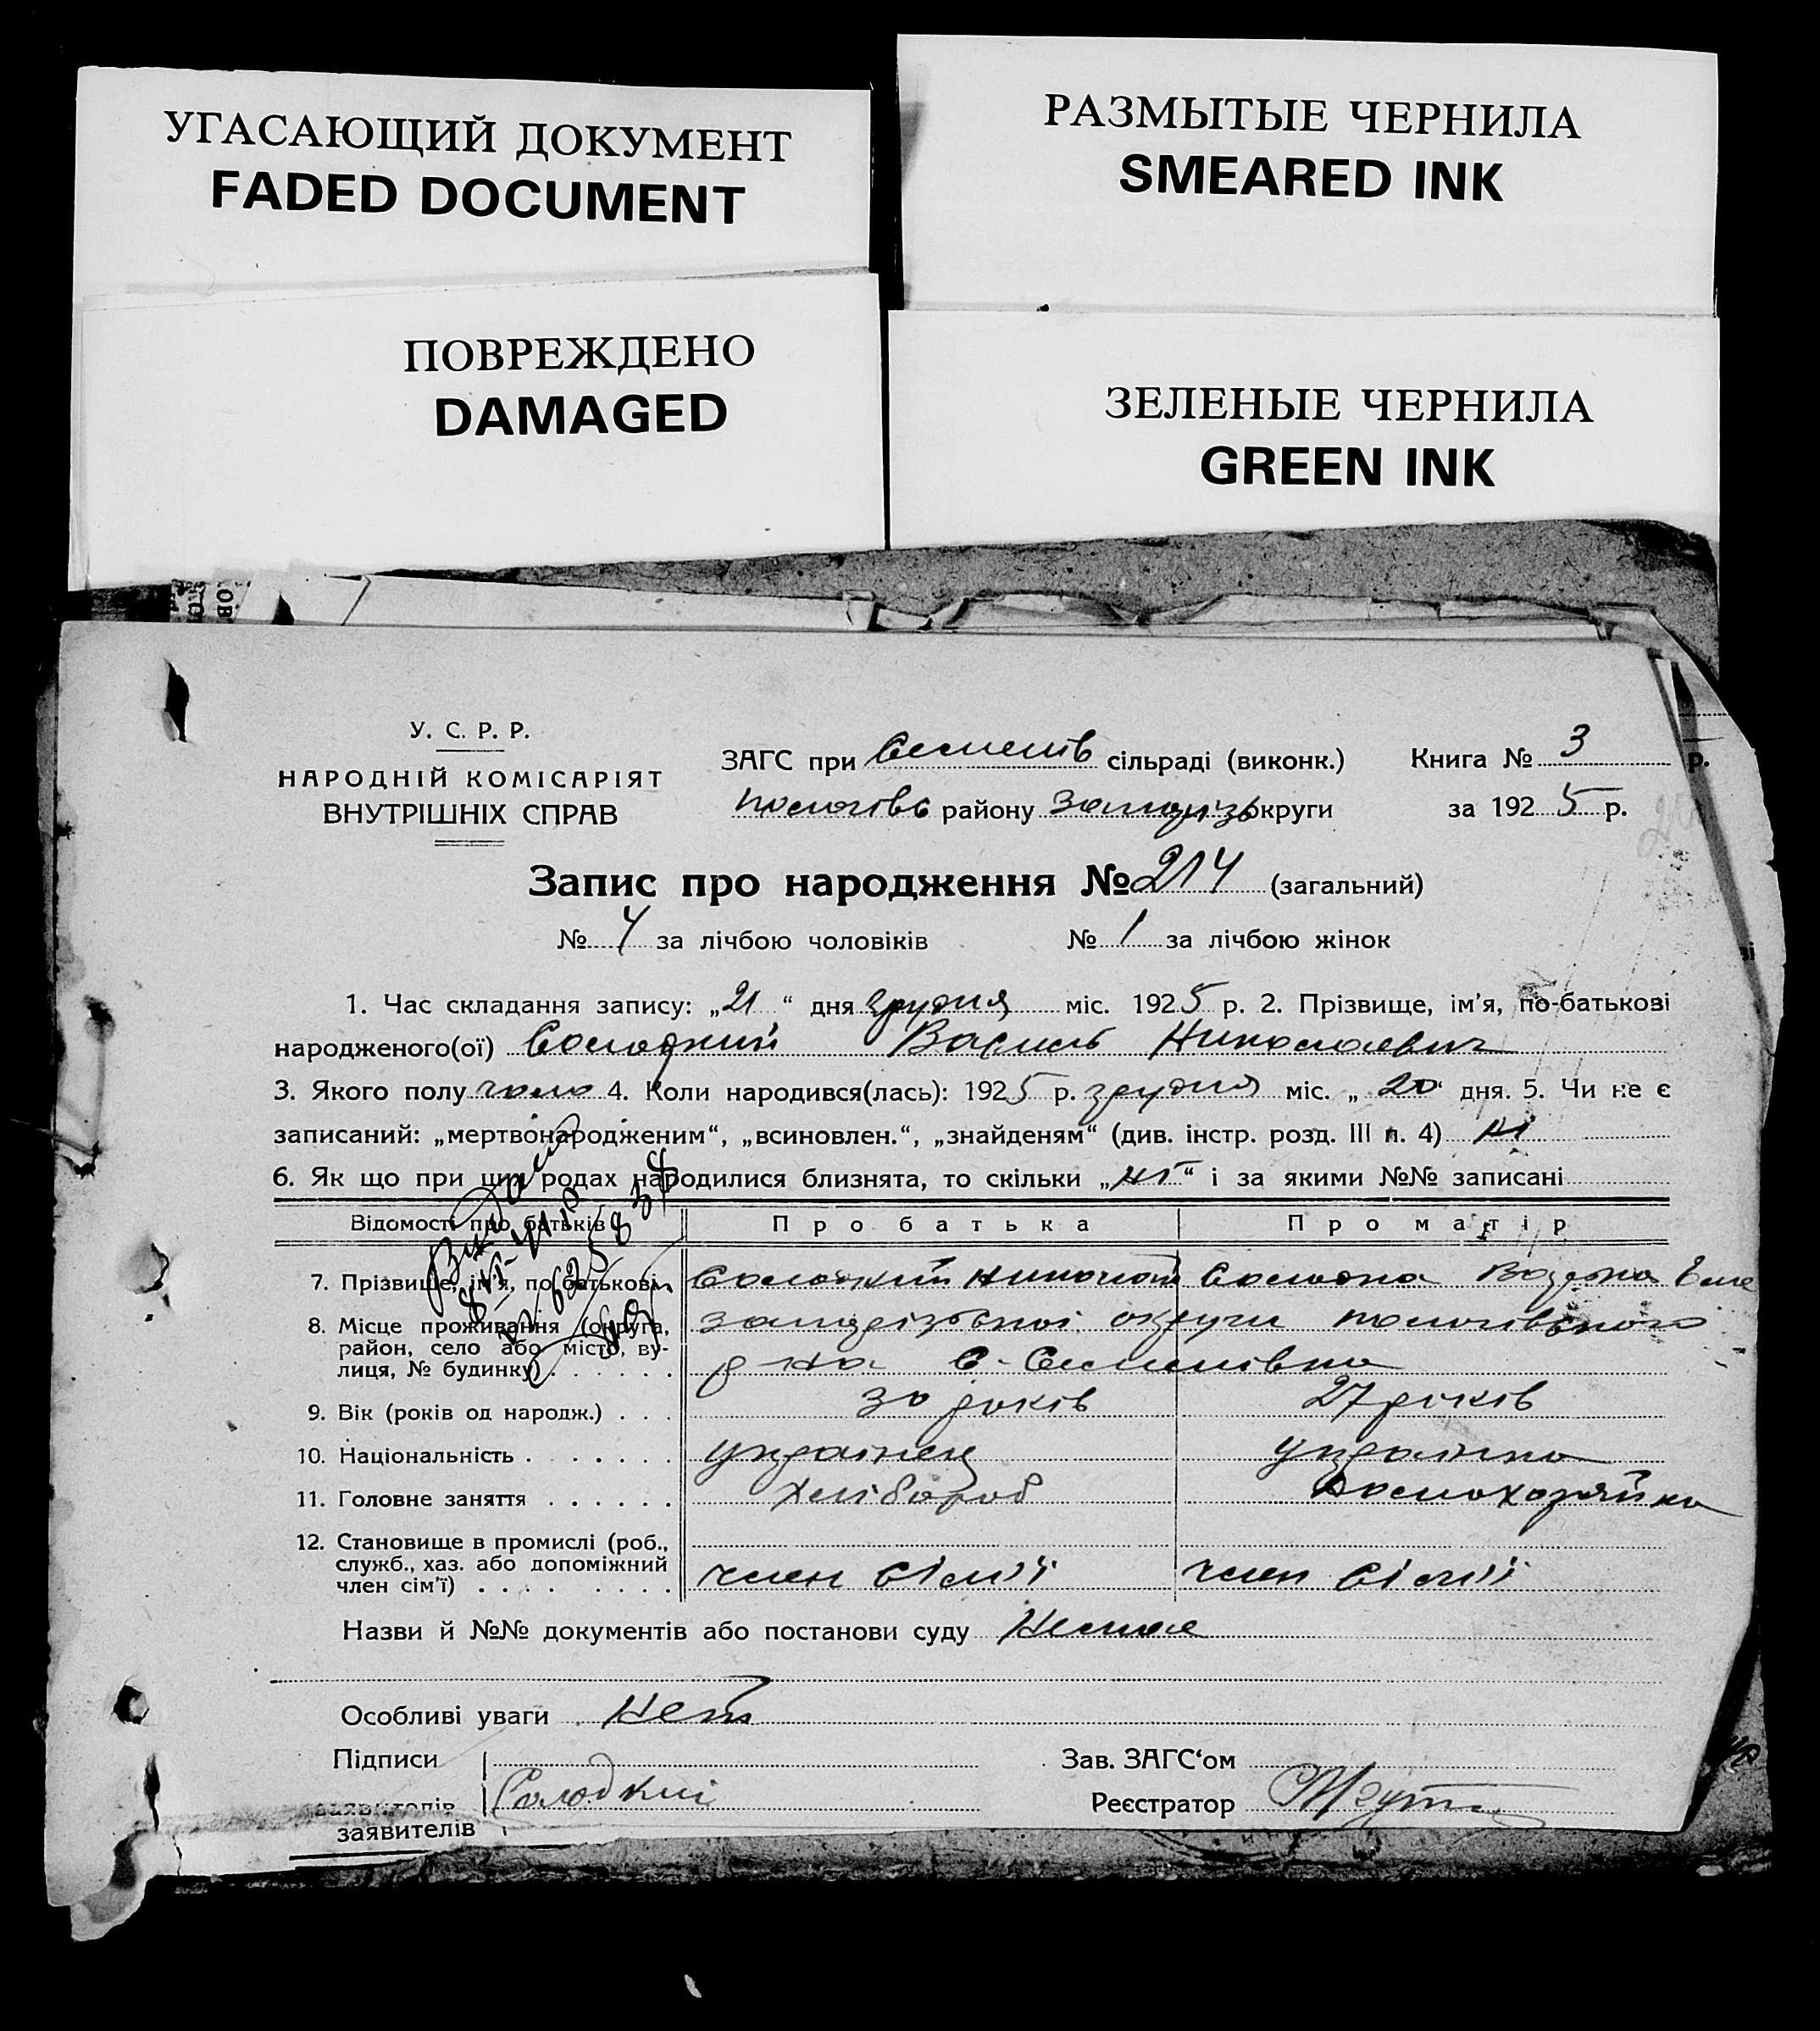 УГАСАЮЩИЙ ДОКУМЕНТ
FADED DOCUMENT
РАЗМЫТЫЕ ЧЕРНИЛА
SMEARED INK
ПОВРЕЖДЕНО
DAMAGED
ЗЕЛЕНЫЕ ЧЕРНИЛА
GREEN INK
У. С. Р. Р.
НАРОДНІЙ КОМІСАРІЯТ
ВНУТРІШНІХ СПРАВ
ЗАГС при сільраді (виконк.)
Книга № 3
району округи
за 1925 р.
Запис про народження № 214 (загальний)
№ 4 за лічбою чоловіків № 1 за лічбою жінок
1. Час складання запису: „21“ дня грудня міс. 1925 р. 2. Прізвище, ім'я, по-батькові
народженого(ої) Солодкий Василь Николаевич
3. Якого полу чоло 4. Коли народився(лась): 1925 р. грудня міс. „20“ дня. 5. Чи не є
записаний: „мертвонародженим“, „всиновлен.“, „знайденям“ (див. інстр. розд. III п. 4) ні
6. Як що при цих родах народилися близнята, то скільки „ні“ і за якими №№ записані
Відомості про батьків Про батька Про матір
7. Прізвище, ім'я, по батькові. Солодкий Николай Солодка
8. Місце проживання (округа, район, село або місто, вулиця, № будинку) запорізької округи пологівського
р-на с.
9. Вік (років од народж.) . . . 30 років 27 років
10. Національність . . . . . . . українец українка
11. Головне заняття . . . . . . хлібороб домохозяйка
12. Становище в промислі (роб.,
служб., хаз. або допоміжний
член сім'ї) . . . . . . . . . член сімії член сімії
Назви й №№ документів або постанови суду Немае
Особливі уваги Нет
Підписи
заявителів
Солодкий
Зав. ЗАГС'ом
Реєстратор
заявителів